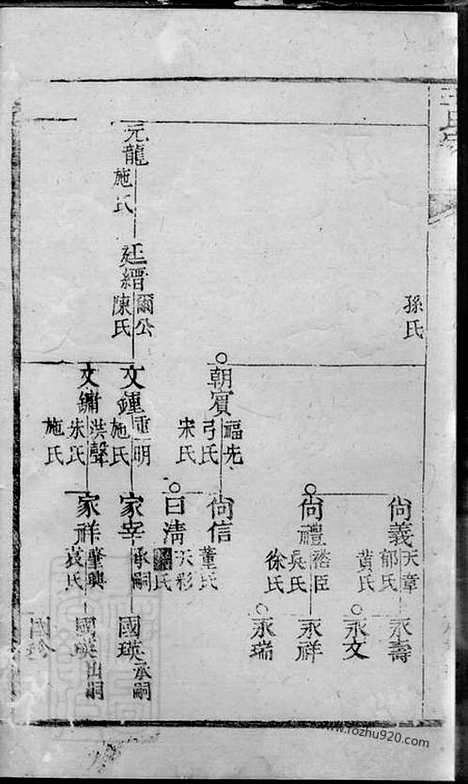 孫氏
朝賓 福先
弓氏
宋氏
元龍
施氏
廷縉 爾公
陳氏
文鍾 重明
施氏
文鏽 洪聲
朱氏
施氏
尚義 天章
郁氏
黃氏
尚禮 裕臣
吳氏
徐氏
尚信
董氏
曰清 天彩
氏
家宰 承嗣
家祥 肇興
袁氏
永壽
永文
永祥
永瑞
國瑛 承嗣
國瑛 出嗣
國珍
www.fozhu920.com